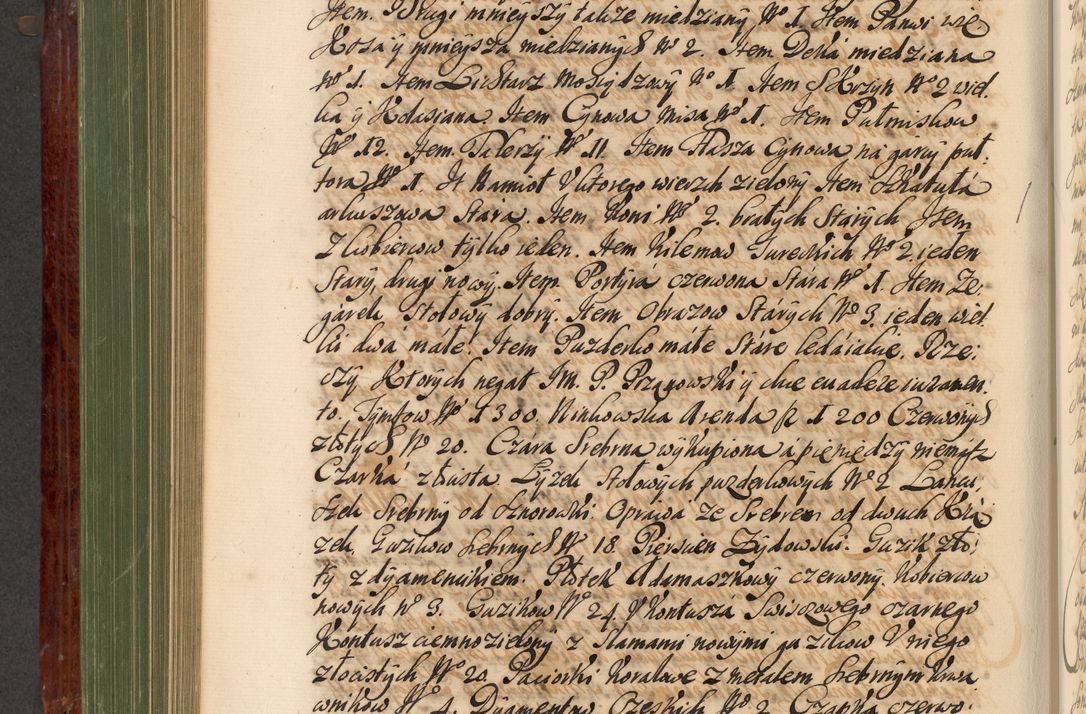 Item. Drugi mnieyszy takze miedziany Nº 1. Item Panwi wię
Kosza y mnieysza miedzianych Nº 2. Item Deka miedziana
Nº 1. Item Lichtarz Mosiądzowy Nº 1. Item Skrzyn Nº 2 wiel
ka y Kolasiana. Item Cynowa Misa Nº 1. Item Pułmiskow
Nº 12. Item Talerzy Nº 11. Item Flasza Cynowa na garcy puł:
tora Nº 1. It Namiot Vktorego wierzch zielony Item Szkatuła
arkuszowa Stara. Item Koni Nº 2. białych Starych Item
Z kobiercow tylko ieden. Item Kilemow Tureckich Nº 2 ieden
Stary, drugi nowy. Item Portyra czerwona Stara Nº 1. Item Ze:
garek Stołowy dobry. Item Obrazow Starych Nº 3. ieden wiel
ki dwa małe. Item Puzderko małe Stare ledaiakie. Rze:
czy Ktorych negat JM. P. Przyłowski y chce euadere iuramen:
to. Tymfow Nº 1300. Ninkowska Arenda fl 1200 Czerwonych
złotych Nº 20. Czara Srebrna wykupiona a pieniędzy niemasz
Czarka złusta. Łyzek Stołowych puzderkowych Nº 2 Łancu,
szek Srebrny od Sznurowki Oprawa ze Srebrem od dwuch Xią
zek, Guzikow srebrnych Nº 18. Piersc̄ien Zydowski. Guzik zło:
ty z dyamencikiem. Płotek Adamaszkowy czerwony. Kobiercow
nowych Nº 3. Guzikow Nº 24. V Kontusza Swiszczowego czarnego
Kontusz ciemnozielony z Tamami nowymi guzikow V niego
złocistych Nº 20. Paciorki Koralowe z metalem Srebrnym Krwa
wnikow Nº 4. Dyamentow Czeskich Nº 2 Czapka czerwo: